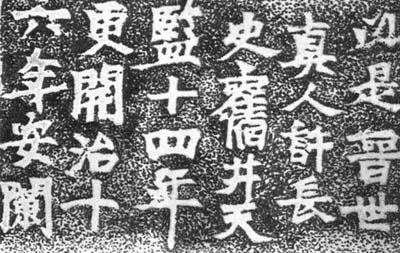 此是晉世
真人許長
史舊井天
監十四年
更開治十
六年安闌